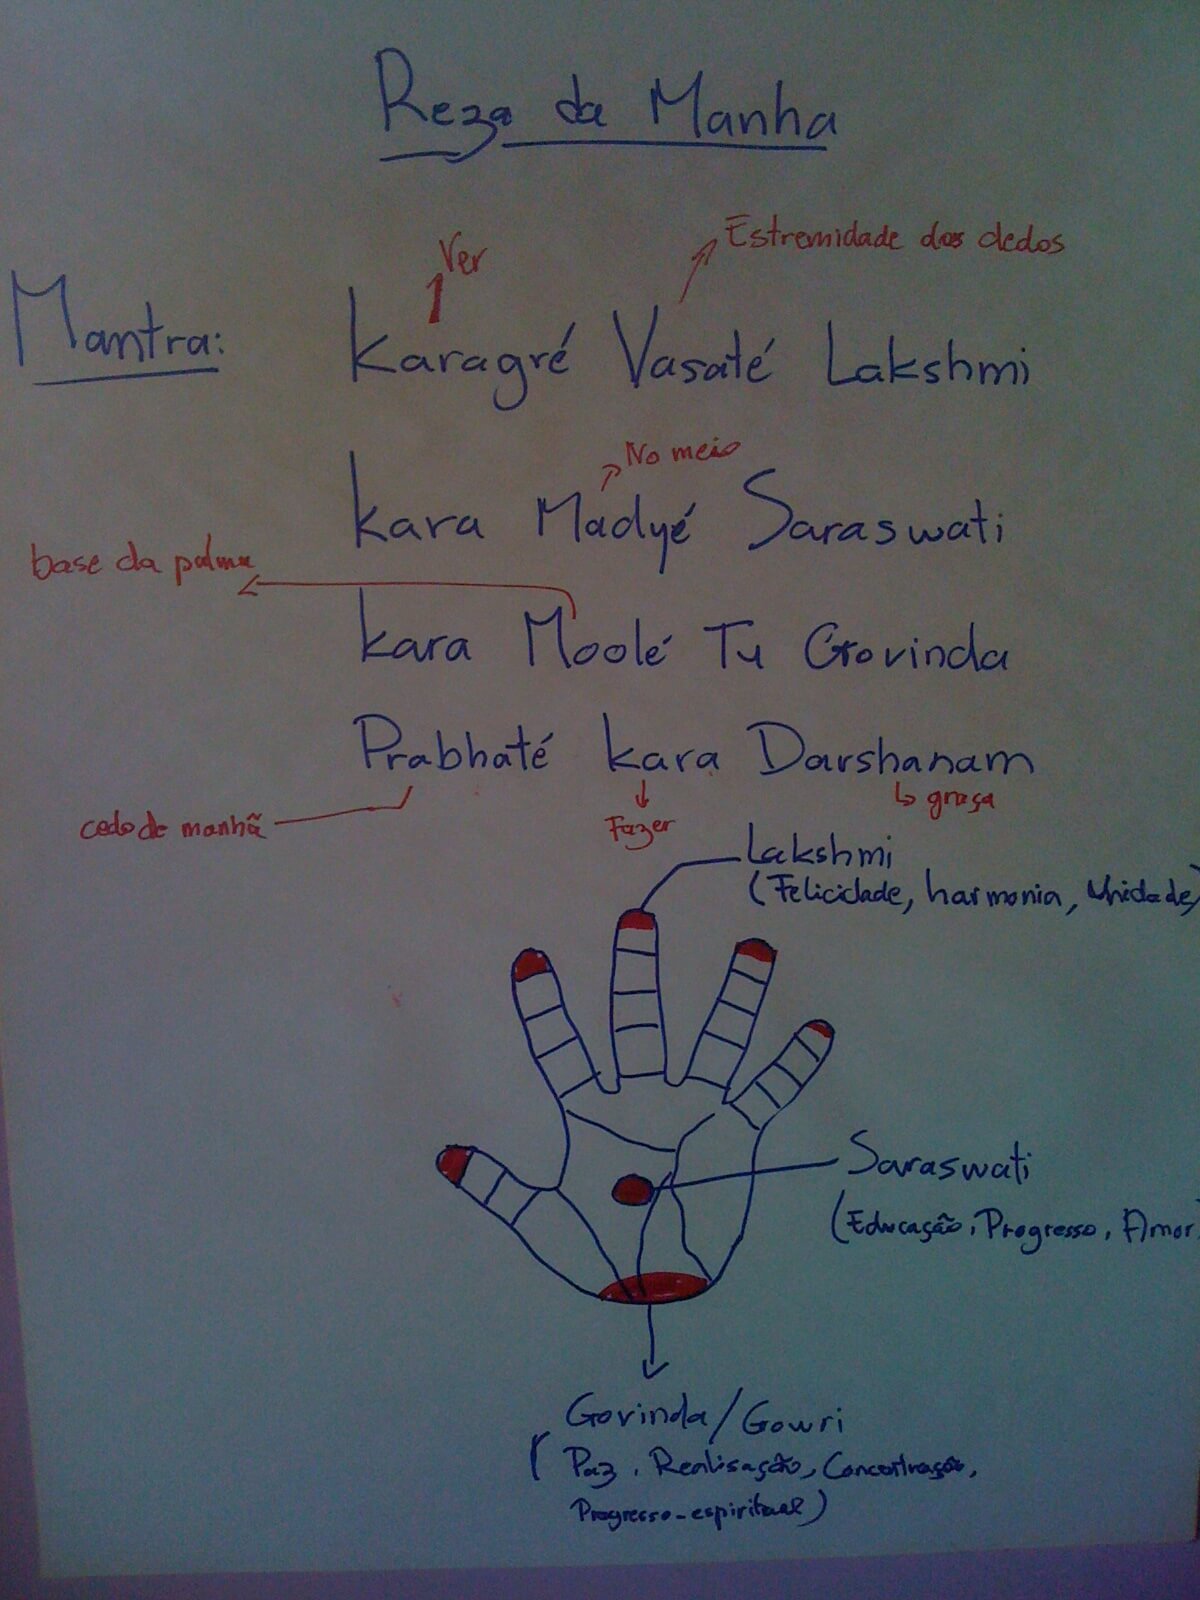 Reza da Manha
Ver
Estremidade dos dedos
Mantra: Karagré Vasaté Lakshmi
No meio
Kara Madyé Saraswati
base da palma
Kara Moolé Tu Govinda
Prabhaté Kara Darshanam
cedo de manhã
Fazer
graça
Lakshmi
(Felicidade, harmonia, Unidade)
Saraswati
(Educação, Progresso, Amor)
Govinda/Gowri
(Paz, Realisação, Concentração,
Progresso-espiritual)